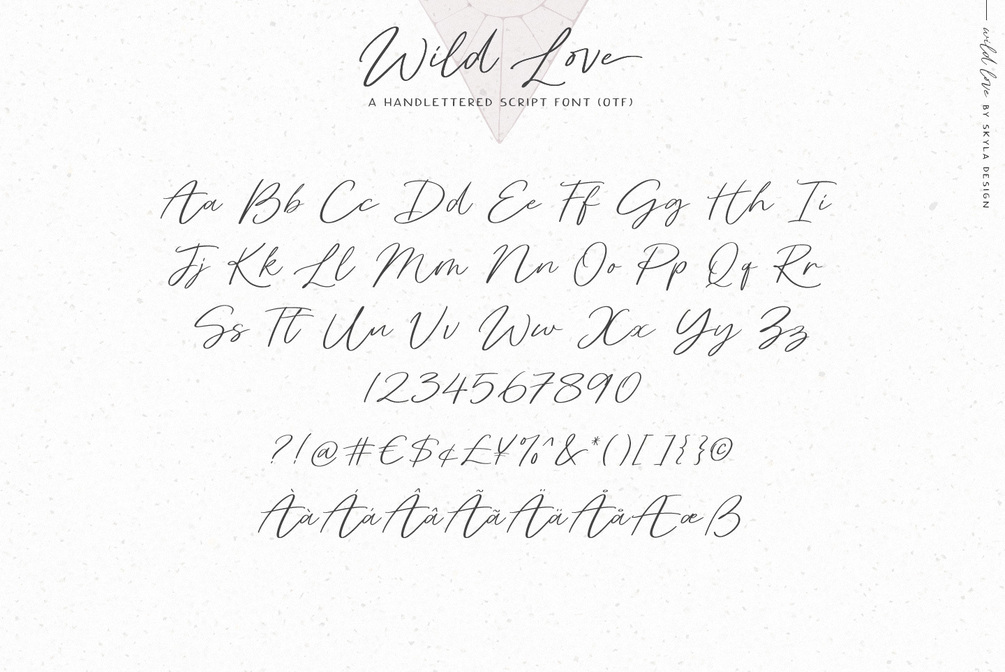 Wild Love
A HANDLETTERED SCRIPT FONT (OTF)
Aa Bb Cc Dd Ee Ff Gg Hh Ii
Jj Kk Ll Mm Nn Oo Pp Qq Rr
Ss Tt Uu Vv Ww Xx Yy Zz
1234567890
?!@#€$¢£¥%^&*()[]{}©
ÀàÁáÂâÃãÄäÅåÆæß
wild love BY SKYLA DESIGN